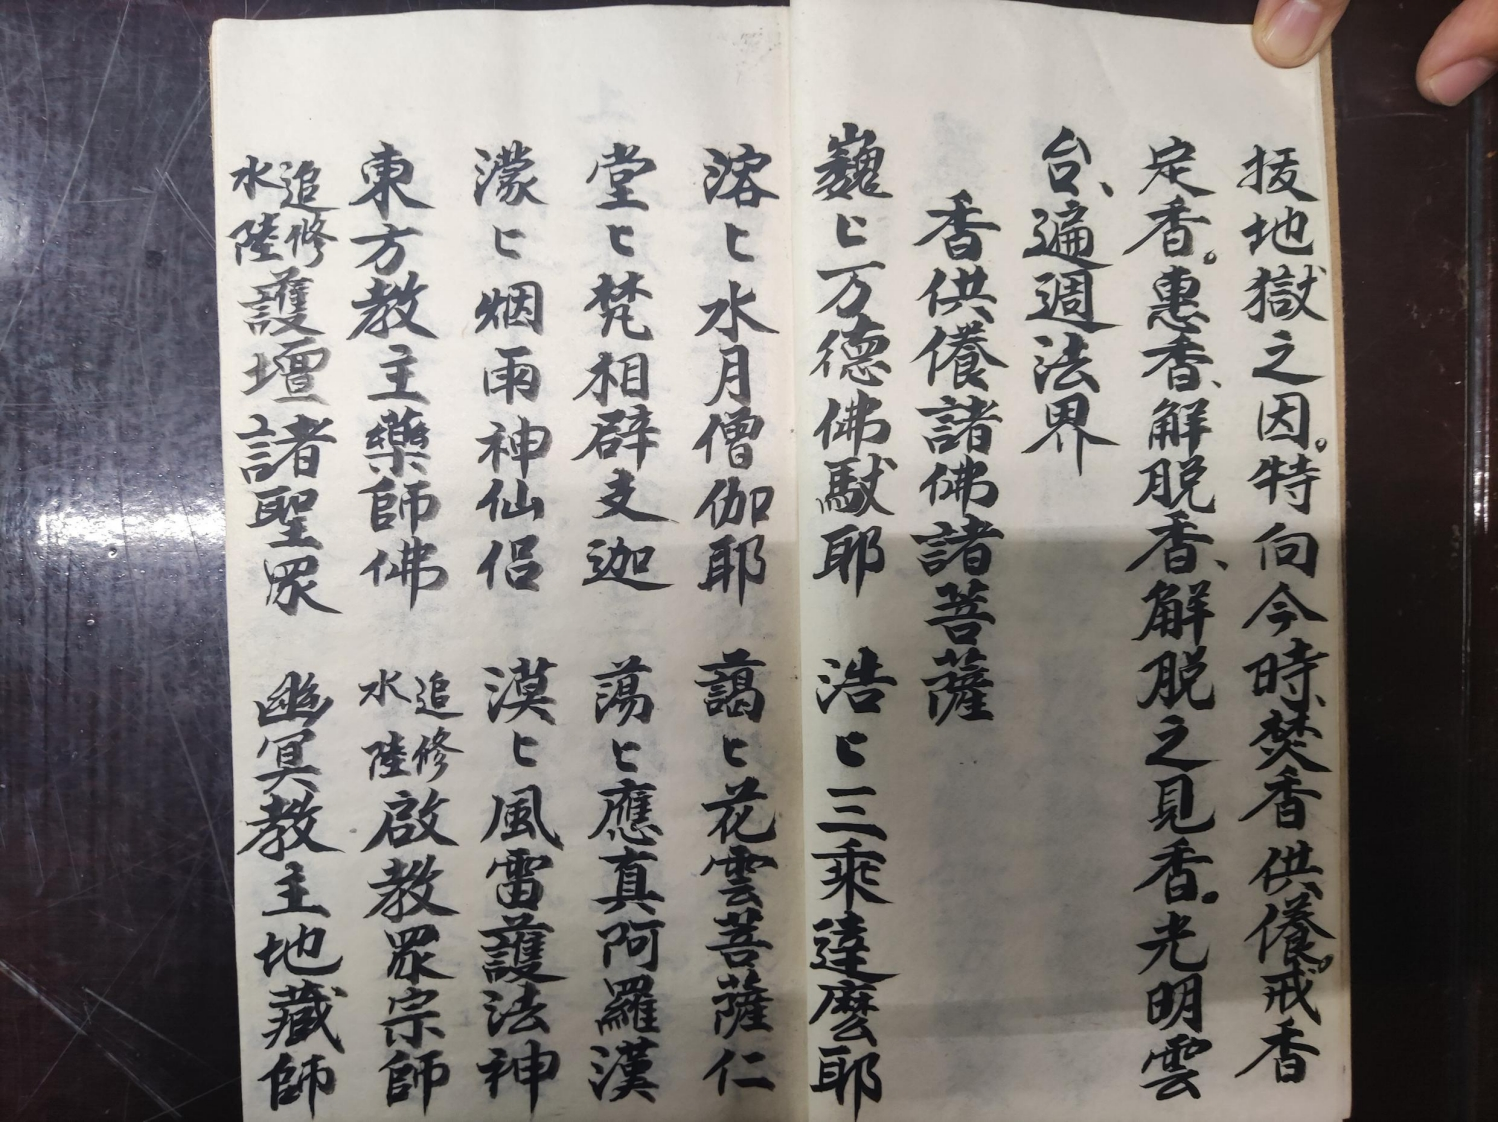 拔地獄之因。特向今時、焚香供養。戒香
定香。惠香、解脱香、解脱之見香。光明雲
台、遍週法界
香供養諸佛諸菩薩
巍匕万德佛馱耶 浩匕三乘達麼耶
溶匕水月僧伽耶 藹匕花雲菩薩仁
堂匕梵相辟支迦 蕩匕應真阿羅漢
濛匕烟雨神仙侣 漠匕風雷護法神
東方教主藥師佛 追修水陸啟教眾宗師
追修水陸護壇諸聖眾 幽冥教主地藏師